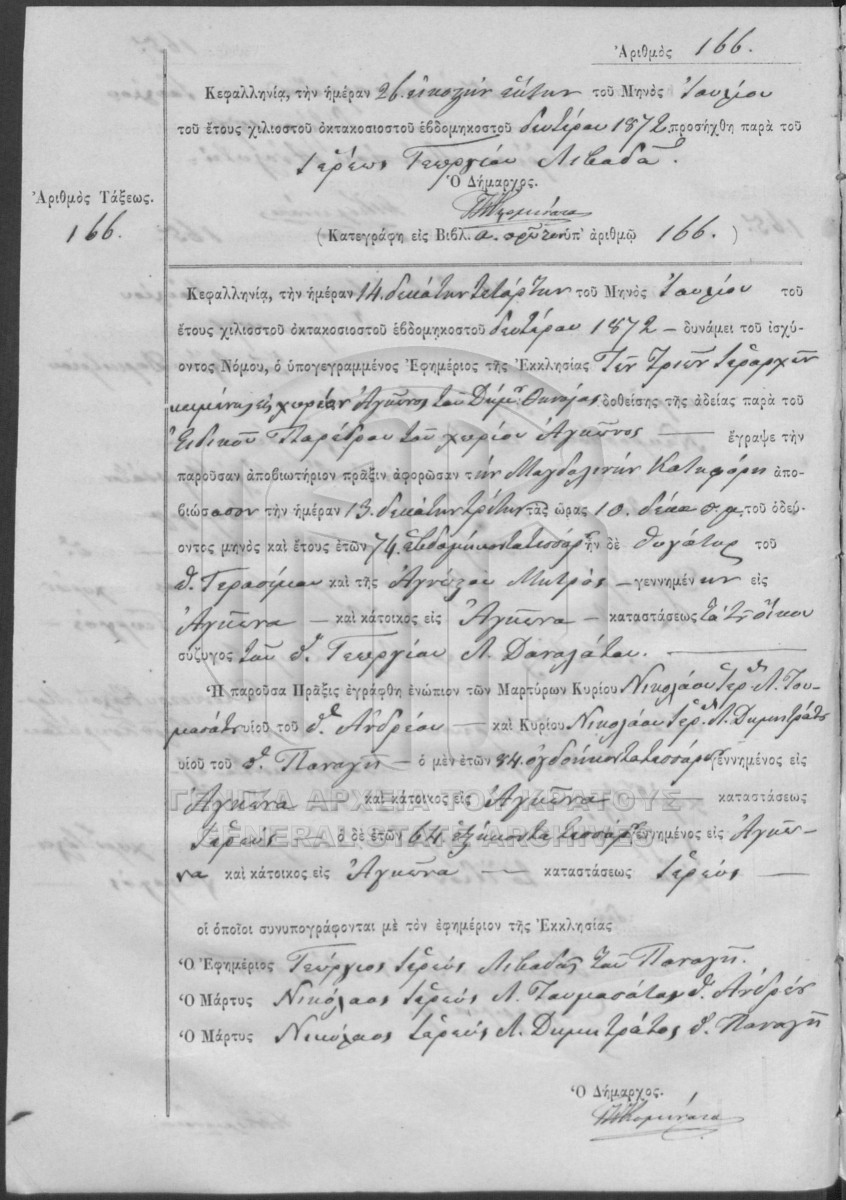 Ἀριθμὸς 166.
Κεφαλληνίᾳ, τὴν ἡμέραν 26. εἰκοστὴν ἕκτην τοῦ Μηνὸς Ἰουλίου
τοῦ ἔτους χιλιοστοῦ ὀκτακοσιοστοῦ ἑβδομηκοστοῦ δευτέρου 1872. προσήχθη παρὰ τοῦ
Ἱερέως Γεωργίου Λιβαδᾶ.
Ὁ Δήμαρχος.
Ἀριθμὸς Τάξεως.
166.
(Κατεγράφη εἰς Βιβλ. α. ὑπ' ἀριθμῷ 166.)
Κεφαλληνίᾳ, τὴν ἡμέραν 14. δεκάτην τετάρτην τοῦ Μηνὸς Ἰουλίου τοῦ
ἔτους χιλιοστοῦ ὀκτακοσιοστοῦ ἑβδομηκοστοῦ δευτέρου 1872 — δυνάμει τοῦ ἰσχύ-
οντος Νόμου, ὁ ὑπογεγραμμένος Ἐφημέριος τῆς Ἐκκλησίας Τῶν Τριῶν Ἱεραρχῶν
κειμένης εἰς χωρίον Ἀγκῶνος τοῦ Δήμ. Θηναίας δοθείσης τῆς ἀδείας παρὰ τοῦ
Εἰδικοῦ Παρέδρου τοῦ χωρίου Ἀγκῶνος — ἔγραψε τὴν
παροῦσαν ἀποβιωτήριον πρᾶξιν ἀφορῶσαν τήν Μαγδαληνήν Κατηφόρη ἀπο-
βιώσασαν τὴν ἡμέραν 13. δεκάτην τρίτην τὰς ὥρας 10. δέκα π.μ. τοῦ ὁδεύ-
οντος μηνὸς καὶ ἔτους ἐτῶν 74. ἑβδομήκοντα τεσσάρ. ἦν δὲ θυγάτηρ τοῦ
π. Γερασίμου καὶ τῆς Ἀγνώστου Μητρὸς — γεννημένην εἰς
Ἀγκῶνα — καὶ κάτοικος εἰς Ἀγκῶνα — καταστάσεως τὰ τοῦ οἴκου
σύζυγος τοῦ π. Γεωργίου Λ. Δαναλάτου.
Ἡ παροῦσα Πρᾶξις ἐγράφθη ἐνώπιον τῶν Μαρτύρων Κυρίου Νικολάου Ἱερ. Λ. Του-
μασάτου υἱοῦ τοῦ π. Ἀνδρέου — καὶ Κυρίου Νικολάου Ἱερ. Λ. Δημητράτου
υἱοῦ τοῦ π. Παναγῆ — ὁ μὲν ἐτῶν 84. ὀγδοήκοντα τεσσάρ. γεννημένος εἰς
Ἀγκῶνα — καὶ κάτοικος εἰς Ἀγκῶνα — καταστάσεως
Ἱερεὺς — ὁ δὲ ἐτῶν 64. ἑξήκοντα τεσσάρ. γεννημένος εἰς Ἀγκῶ-
να καὶ κάτοικος εἰς Ἀγκῶνα — καταστάσεως Ἱερεὺς —
οἱ ὁποῖοι συνυπογράφονται μὲ τὸν ἐφημέριον τῆς Ἐκκλησίας
Ὁ Ἐφημέριος Γεώργιος Ἱερεὺς Λιβαδᾶς τοῦ Παναγῆ.
Ὁ Μάρτυς Νικόλαος Ἱερεὺς Λ. Τουμασάτος π. Ἀνδρέα
Ὁ Μάρτυς Νικόλαος Ἱερεὺς Λ. Δημητράτος π. Παναγῆ
Ὁ Δήμαρχος.
ΓΕΝΙΚΑ ΑΡΧΕΙΑ ΤΟΥ ΚΡΑΤΟΥΣ
GENERAL STATE ARCHIVES